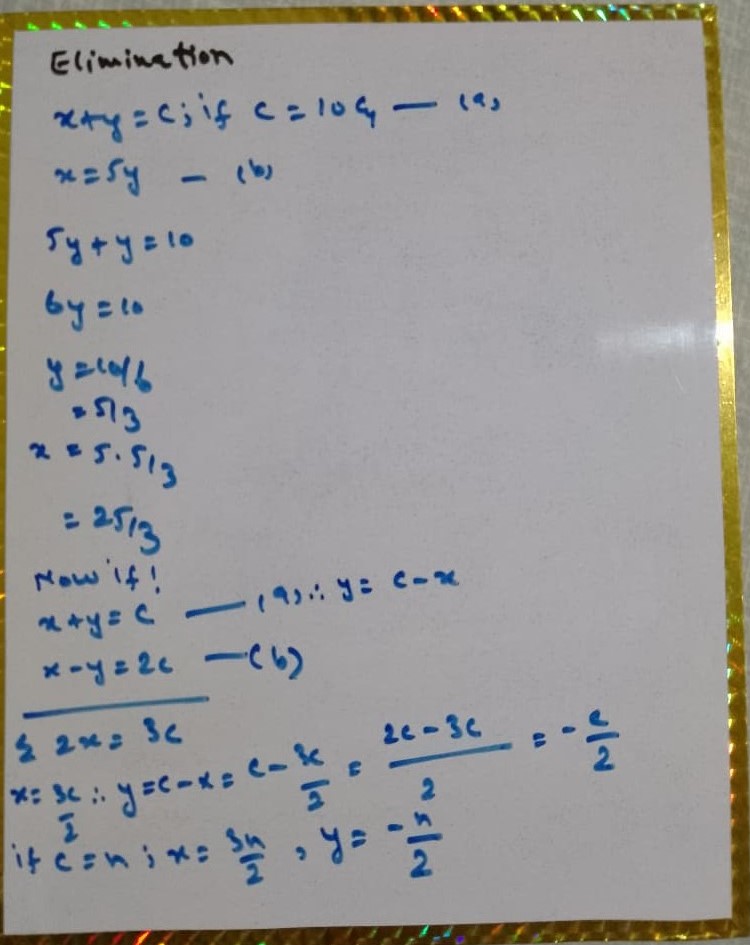 Elimination
x+y = c; if c = 10 — (a)
x = 5y — (b)
5y + y = 10
6y = 10
y = 10/6
= 5/3
x = 5.5/3
= 25/3
Now if!
x + y = c — (a) ∴ y = c - x
x - y = 2c — (b)
2x = 3c
x = 3c/2 ∴ y = c - x = c - 3c/2 = 2c - 3c/2 = - c/2
if c = n ; x = 3n/2 , y = - n/2